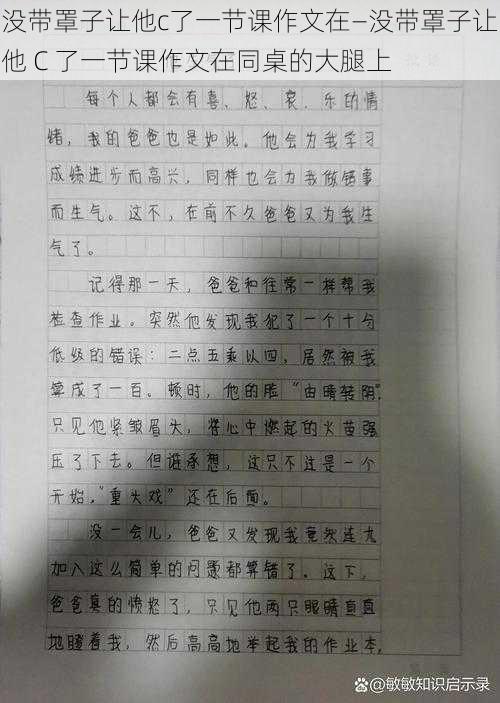 没带罩子让他c了一节课作文在–没带罩子让
他 C 了一节课作文在同桌的大腿上
每个人都会有喜、怒、哀、乐的情
绪，我的爸爸也是如此。他会为我学习
成绩进步而高兴，同样也会为我做错事
而生气。这不，在前不久爸爸又为我生
气了。
记得那一天，爸爸和往常一样帮我
检查作业。突然他发现我犯了一个十分
低级的错误：二点五乘以四，居然被我
算成了一百。顿时，他的脸“由晴转阴”，
只见他紧皱眉头，将心中燃起的火苗强
压了下去。但谁承想，这只不过是一个
开始，“重头戏”还在后面。
没一会儿，爸爸又发现我竟然连九
加八这么简单的问题都算错了。这下，
爸爸真的愤怒了，只见他两只眼睛直直
地瞪着我，然后高高地举起我的作业本，
@敏敏知识启示录